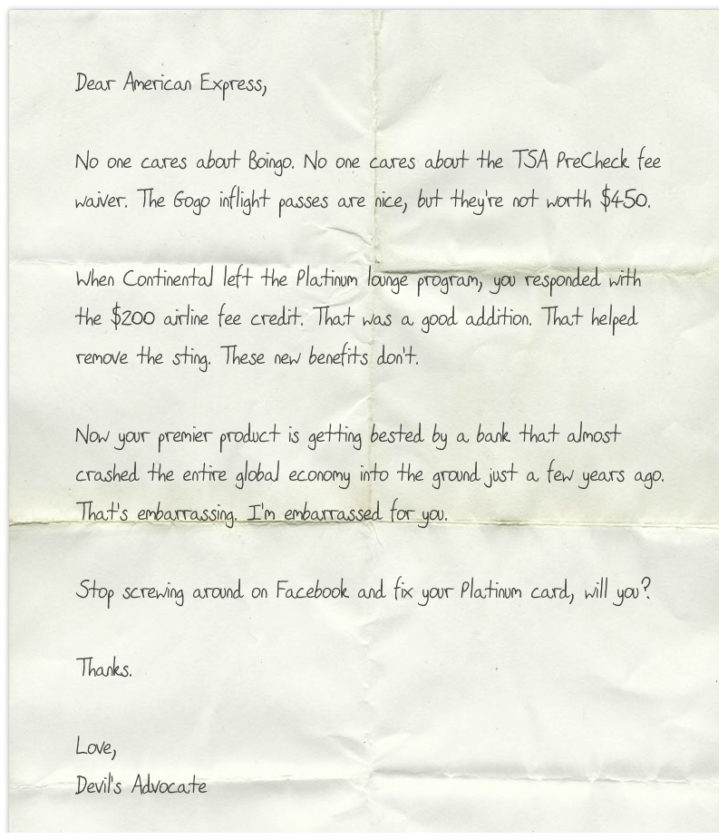 Dear American Express,
No one cares about Boingo. No one cares about the TSA PreCheck fee
waiver. The Gogo inflight passes are nice, but they're not worth $450.
When Continental left the Platinum lounge program, you responded with
the $200 airline fee credit. That was a good addition. That helped
remove the sting. These new benefits don't.
Now your premier product is getting bested by a bank that almost
crashed the entire global economy into the ground just a few years ago.
That's embarrassing. I'm embarrassed for you.
Stop screwing around on Facebook and fix your Platinum card, will you?
Thanks.
Love,
Devil's Advocate